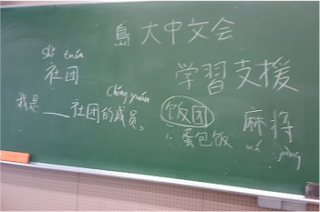 島大中文会
学習支援
shè tuán
社团
chéng yuán
我是___社团的成员。
饭团
蛋包饭
麻将
má jiàng